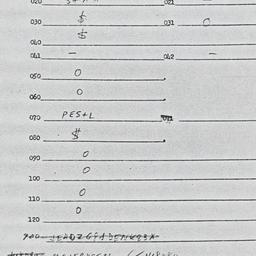 020 021
030 $ 031 O
040 $
041 — 042 —
050 O
060 O
070 PES+L
080 $
090 O
100 O
110 O
120 O